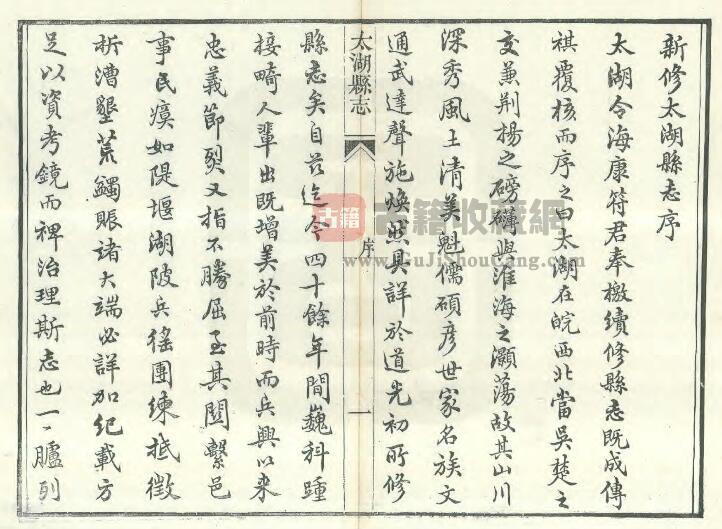 新修太湖縣志序
太湖令海康符君奉檄續修縣志既成傳
祺覆核而序之曰太湖在皖西北當吳楚之
交兼荆揚之磅礴與淮海之灝蕩故其山川
深秀風土清美魁儒碩彥世家名族文
通武達聲施煥然具詳於道光初所修
太湖縣志
序
一
縣志矣自茲迄今四十餘年間巍科踵
接畸人輩出既增美於前時而兵興以來
忠義節烈又指不勝屈至其關繫邑
事民瘼如隄堰湖陂兵徭團練抵徵
析漕墾荒蠲賑諸大端必詳加紀載方
足以資考鏡而裨治理斯志也一々臚列
古籍
古籍收藏網
www.GuJiShouCang.com